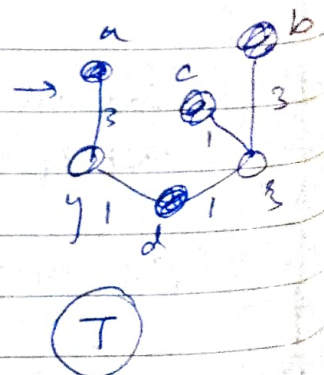 a
b
→
c
3
3
1
y
1
1
d
T